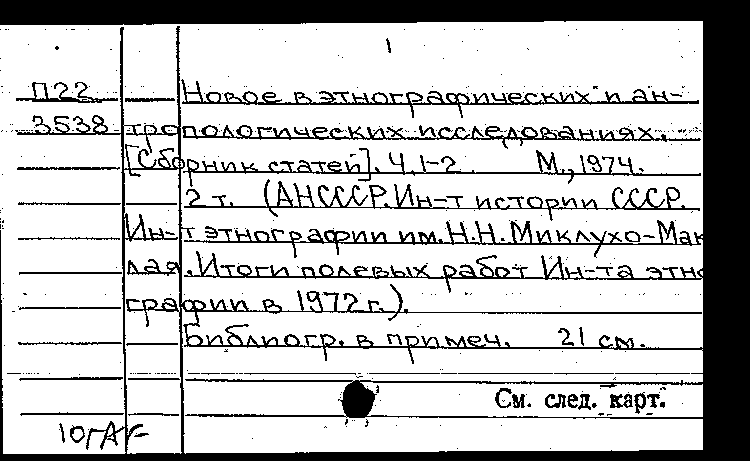 1
П22 Новое в этнографических и ан-
3538 тропологических исследованиях.
[Сборник статей]. Ч.1-2. М., 1974.
2 т. (АН СССР. Ин-т истории СССР.
Ин-т этнографии им. Н.Н. Миклухо-Мак
лая. Итоги полевых работ Ин-та этно
графии в 1972 г.).
Библиогр. в примеч. 21 см.
См. след. карт.